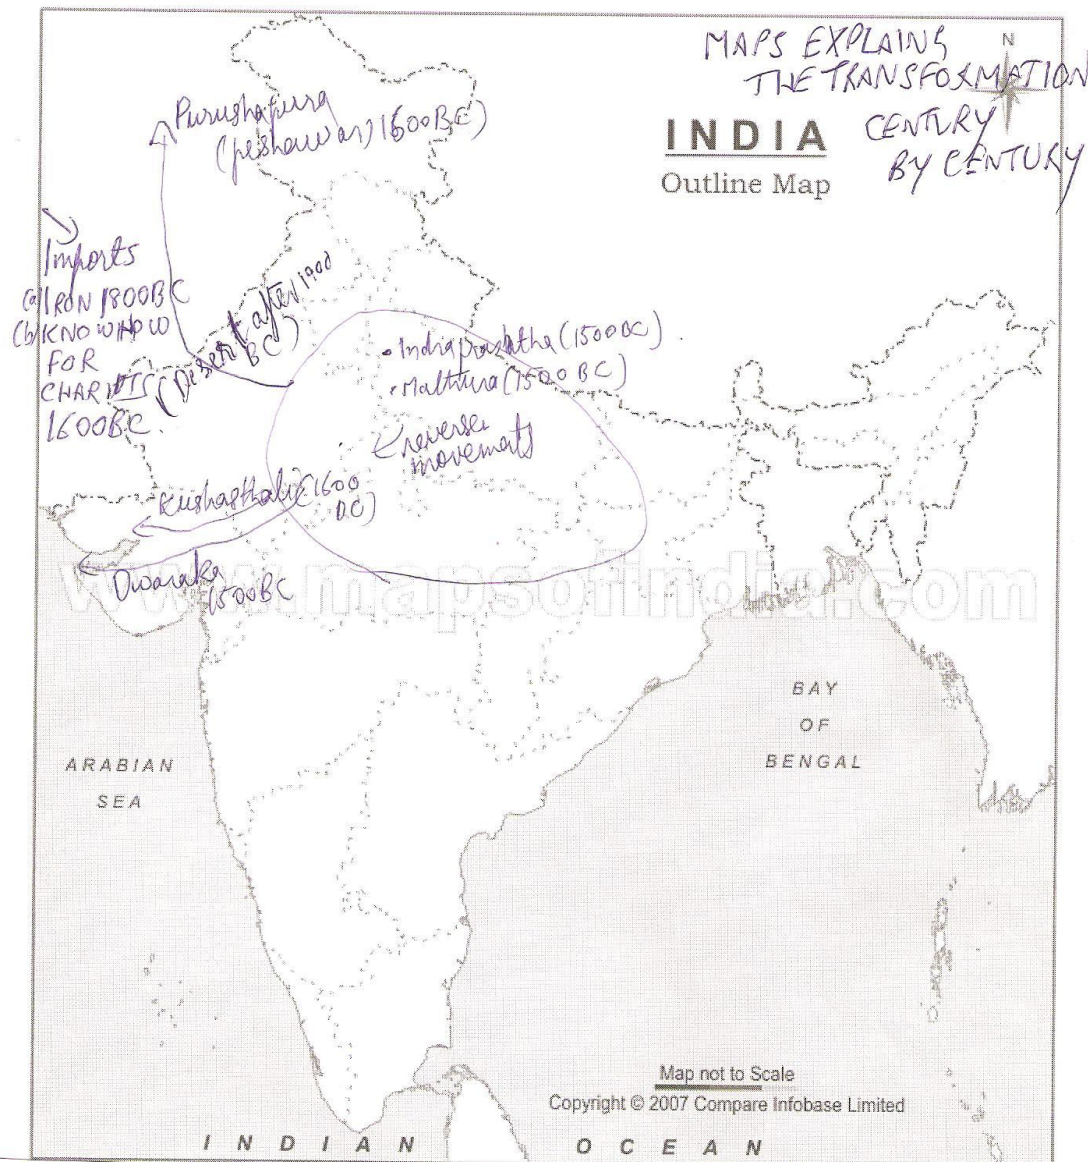 MAPS EXPLAINING
THE TRANSFORMATION
CENTURY
BY CENTURY
N
INDIA
Outline Map
Purushapura
(peshawar) 1600BC)
Imports
(a) IRON 1800BC
(b) KNOWHOW
FOR
CHARIOTS
1600BC.
(Desert after 1900
BC)
• Indraprashtha (1500BC)
• Mathura (1500BC)
reverse
movements
Kushasthali (1600
BC)
Dwaraka
1500BC
www.mapsofindia.com
BAY
OF
BENGAL
ARABIAN
SEA
Map not to Scale
Copyright © 2007 Compare Infobase Limited
INDIAN OCEAN